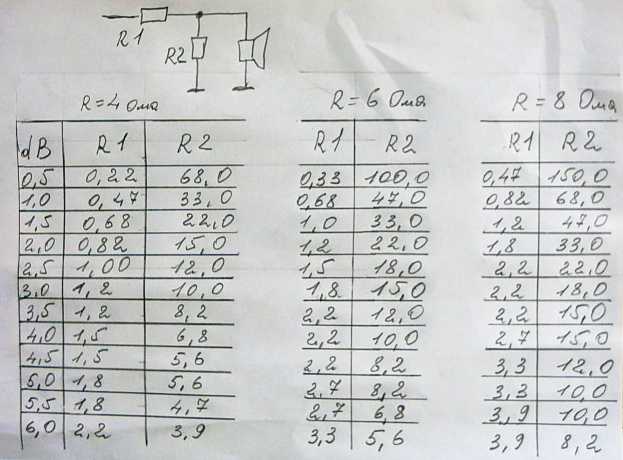 R1
R2
R=4 Ома R=6 Ома R=8 Ома
dB R1 R2 R1 R2 R1 R2
0,5 0,22 68,0 0,33 100,0 0,47 150,0
1,0 0,47 33,0 0,68 47,0 0,82 68,0
1,5 0,68 22,0 1,0 33,0 1,2 47,0
2,0 0,82 15,0 1,2 22,0 1,8 33,0
2,5 1,00 12,0 1,5 18,0 2,2 22,0
3,0 1,2 10,0 1,8 15,0 2,2 18,0
3,5 1,2 8,2 2,2 12,0 2,2 15,0
4,0 1,5 6,8 2,2 10,0 2,7 15,0
4,5 1,5 5,6 2,2 8,2 3,3 12,0
5,0 1,8 5,6 2,7 8,2 3,3 10,0
5,5 1,8 4,7 2,7 6,8 3,9 10,0
6,0 2,2 3,9 3,3 5,6 3,9 8,2